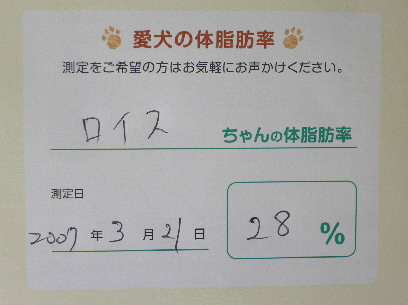 愛犬の体脂肪率
測定をご希望の方はお気軽にお声かけください。
ロイス ちゃんの体脂肪率
測定日
2007年3月21日 28%